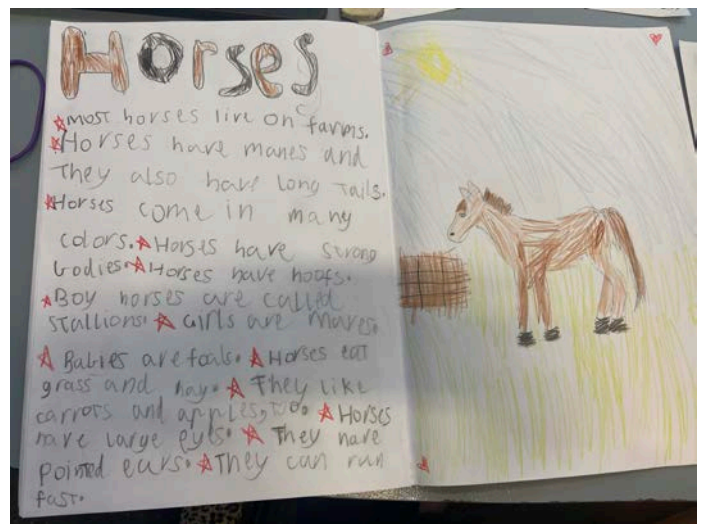 Horses
most horses live on farms.
Horses have manes and
They also have long Tails.
Horses come in many
colors. Horses have strong
bodies. Horses have hoofs.
Boy horses are called
stallions. Girls are Mares.
Babies are foals. Horses eat
grass and hay. They like
carrots and apples, too. Horses
have large eyes. They have
pointed ears. They can run
fast.